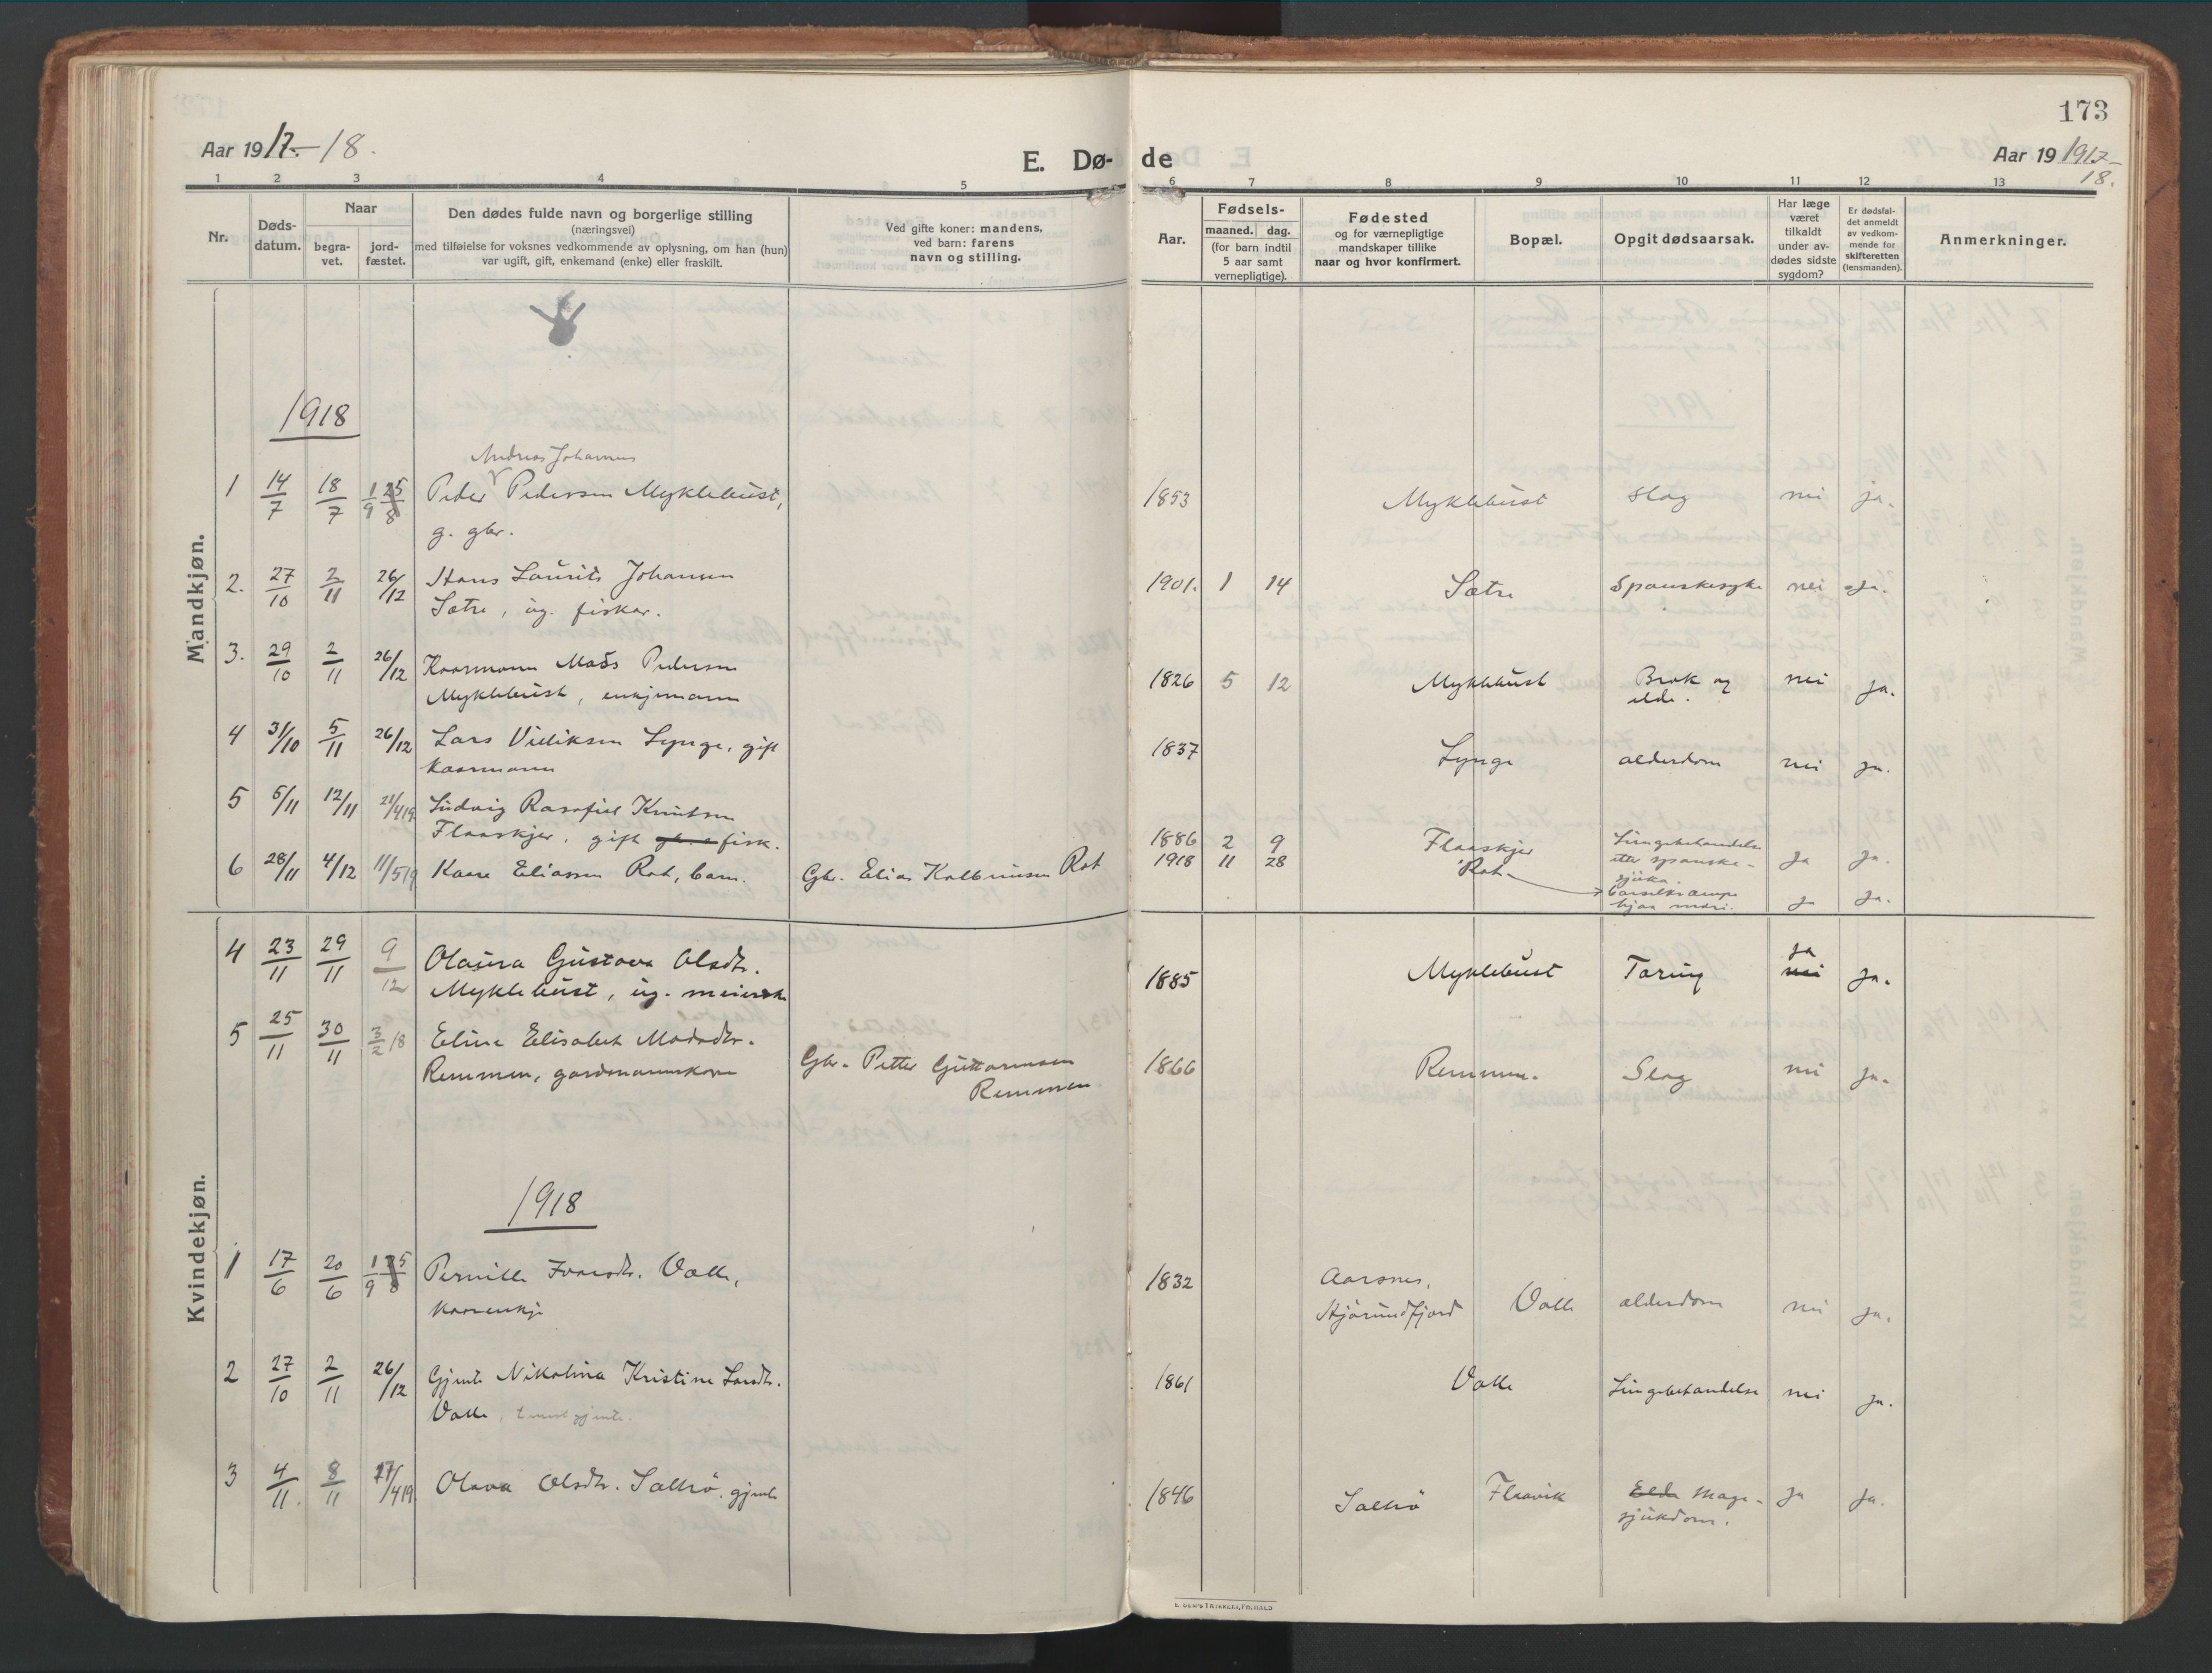 173
Aar 1917-18.
E. Dø- de
Aar 19 1917-
18.
1 2 3 4 5 6 7 8 9 10 11 12 13
Nr.
Døds-
datum.
Naar
begra-
vet.
jord-
fæstet.
Den dødes fulde navn og borgerlige stilling
(næringsvei)
med tilføielse for voksnes vedkommende av oplysning, om han (hun)
var ugift, gift, enkemand (enke) eller fraskilt.
Ved gifte koner: mandens,
ved barn: farens
navn og stilling.
Aar.
Fødsels-
maaned. dag.
(for barn indtil
5 aar samt
vernepligtige).
Fødested
og for værnepligtige
mandskaper tillike
naar og hvor konfirmert.
Bopæl.
Opgit dødsaarsak.
Har læge
været
tilkaldt
under av-
dødes sidste
sygdom?
Er dødsfal-
det anmeldt
av vedkom-
mende for
skifteretten
(lensmanden).
Anmerkninger.
Mandkjøn.
1918
Andreas Johannes
1 14/7 18/7 1/9 25/8 Peder Pedersen Myklebust, 1853 Myklebust Slag nei ja.
g. gbr.
2. 27/10 2/11 26/12 Hans Laurits Johansen 1901. 1 14 Sætre Spanskesyke nei Ja.
Sætre, ug. fisker.
3. 29/10 2/11 26/12 Kaarmann Mads Pedersen 1826 5 12 Myklebust Brok og nei ja.
Myklebust, enkjemann elde.
4 31/10 5/11 26/12 Lars Vidiksen Lynge, gift 1837 Lynge alderdom nei ja.
kaarmann
5 5/11 12/11 21/4 19 Ludvig Knutsen
Flaaskjer, gift fisk. 1886 2 9 Flaaskjer Lungebetændelse
etter spanske-
sjuka. ja ja.
6 28/11 4/12 11/5 19 Kaare Eliassen Rot, barn. Gbr. Elias Kolbeinsen Rot 1918 11 28 Rot
barselkrampe
hjaa mori. ja ja.
Kvindekjøn.
4 23/11 29/11 9/12 Olaura Gustava Olsdtr. 1885 Myklebust Tæring ja nei ja.
Myklebust, ug. meierske
5 25/11 30/11 3/2 18 Eline Elisabet Madsdtr. Gbr. Petter Guttormsen 1866 Remmen. Slag nei ja.
Remmen, gardmannskone Remmen
1918
1 17/6 20/6 1/9 25/8 Pernille Ivarsdtr. Valle, 1832 Aarsnes, Valle alderdom nei ja.
kaarenkje Hjørundfjord
2 27/10 2/11 26/12 Gjente Nikolina Kristine Larsdtr. 1861 Valle Lungebetændelse nei ja.
Valle, gjente.
3 4/11. 8/11 27/4 19 Olava Olsdtr. Saltrø, gjente 1846 Saltrø Flaavik Elde Mage- ja ja.
sjukdom.